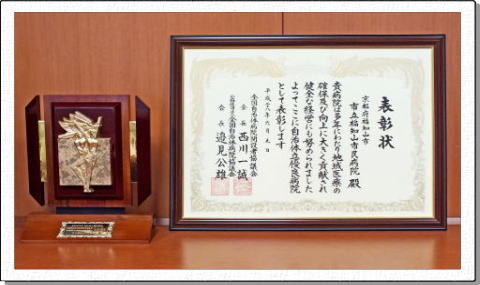 表彰状
京都府福知山市
市立福知山市民病院 殿
貴病院は多年にわたり地域医療の
確保及び向上に大きく貢献され
健全な経営にも努められました
よってここに自治体立優良病院
として表彰します
平成廿八年六月九日
全国自治体病院開設者協議会
会長 西川一誠
公益社団法人全国自治体病院協議会
会長 邉見公雄